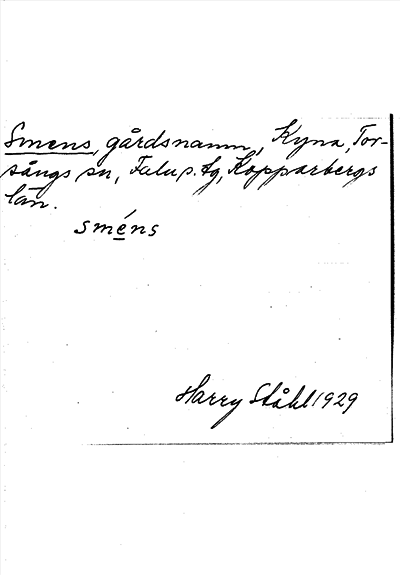 Smens, gårdsnamn, Kyna, Tor-
sångs sn, Falu s. tg, Kopparbergs
län.
sméns
Harry Ståhl 1929